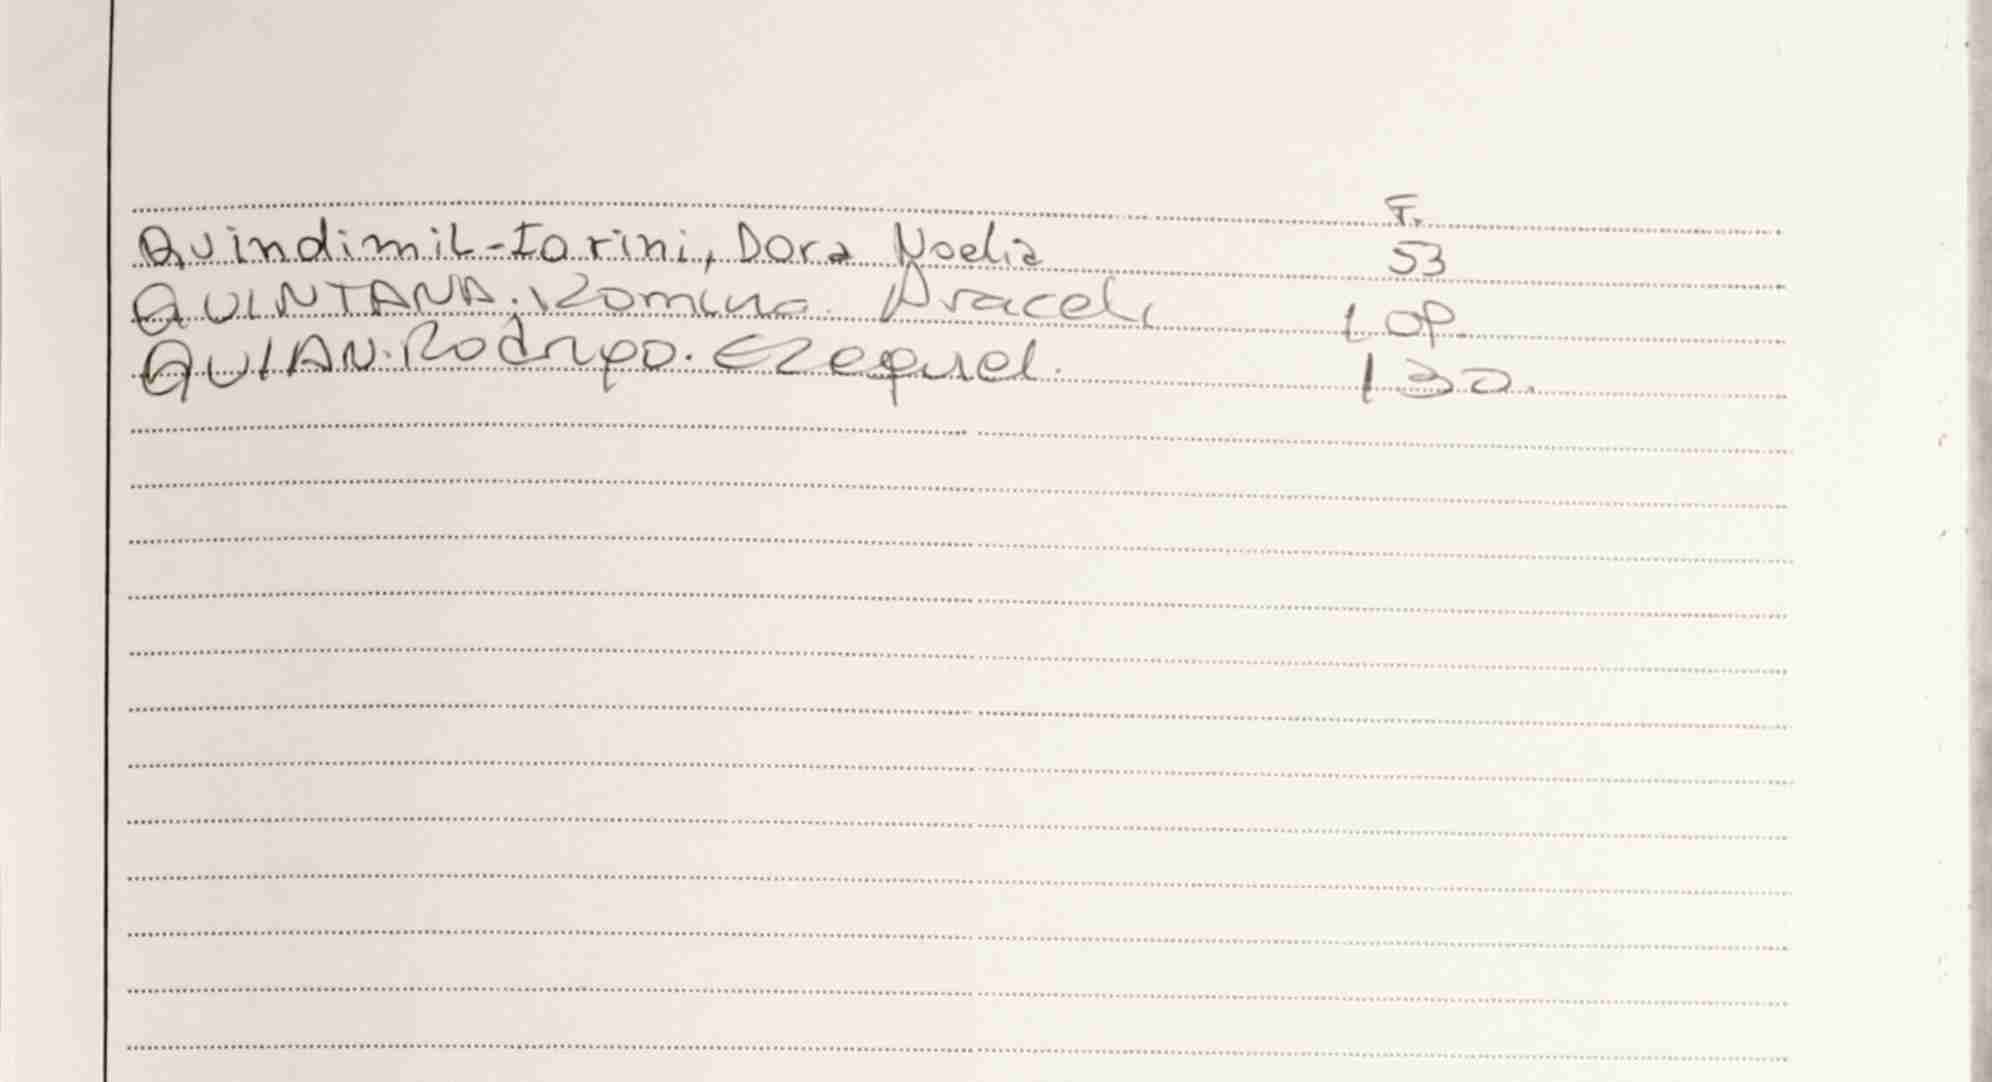 F.
Quindimil-Iorini, Dora Noelia 53
QUINTANA. Romina. Araceli
QUIAN. Rodrigo. Ezequiel. 130.